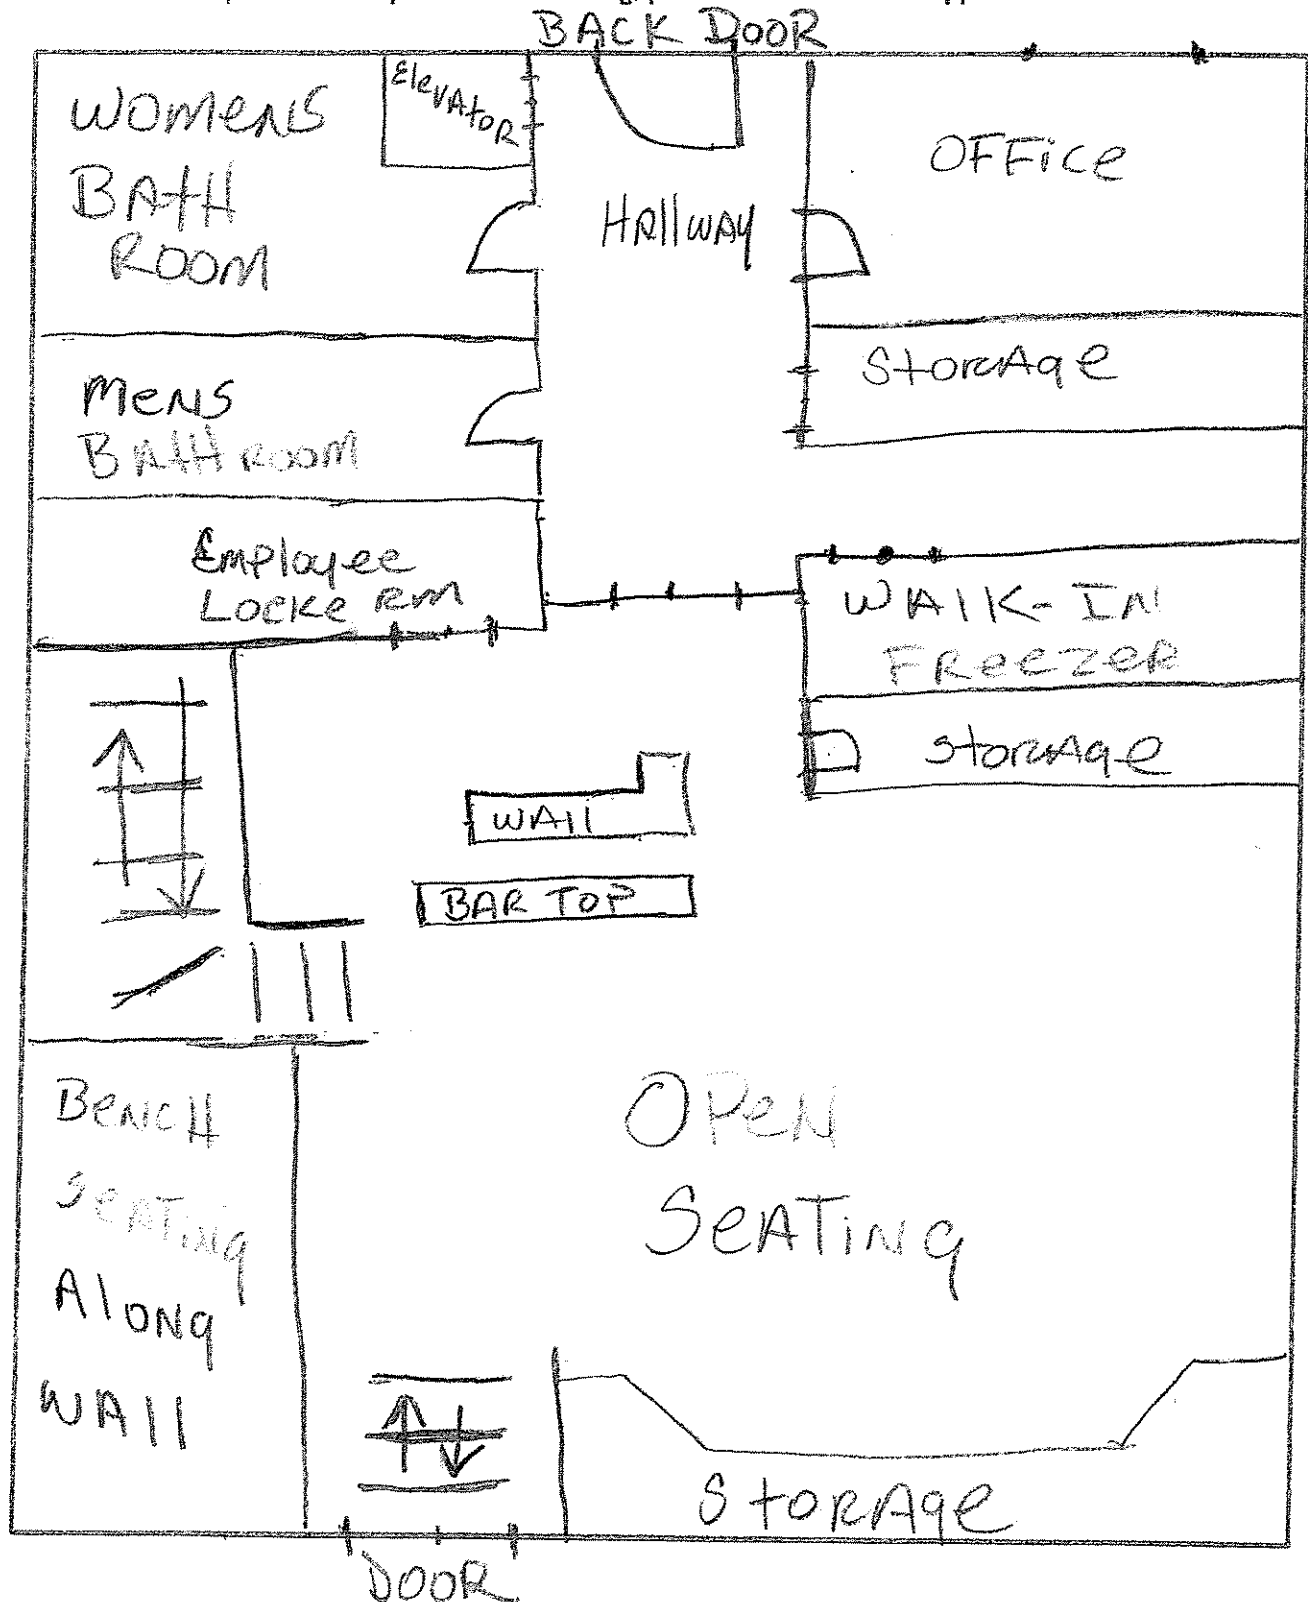 BACK DOOR
WOMENS
BATH
ROOM
Elevator
HAllWAY
OFFice
StorAge
MeNS
BATHROOM
Employee
Locke Rm
WAlK-IN
FReezeR
StorAge
WAll
BAR TOP
BeNCH
SeATiNg
AloNg
WAll
OPeN
SeATiNg
StoRAge
DOOR